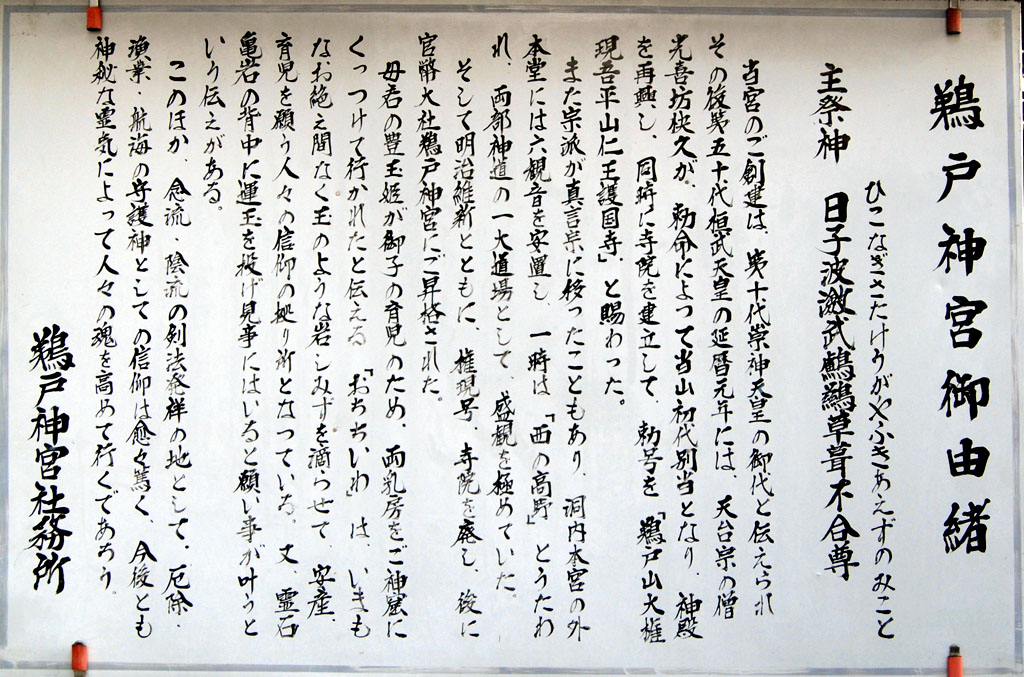 鵜戸神宮御由緒
ひこなぎさたけうがやふきあえずのみこと
主祭神 日子波瀲武鸕鷀草葺不合尊
当宮のご創建は、第十代崇神天皇の御代と伝えられ
その後第五十代桓武天皇の延暦元年には、天台宗の僧
光喜坊快久が、勅命によって当山初代別当となり、神殿
を再興し、同時に寺院を建立して、勅号を「鵜戸山大権
現吾平山仁王護国寺」と賜わった。
また宗派が真言宗に移ったこともあり、洞内本宮の外
本堂には六観音を安置し、一時は「西の高野」とうたわ
れ、両部神道の一大道場として、盛観を極めていた。
そして明治維新とともに、権現号、寺院を廃し、後に
官幣大社鵜戸神宮にご昇格された。
母君の豊玉姫が御子の育児のため、両乳房をご神窟に
くっつけて行かれたと伝える「おちちいわ」は、いまも
なお絶え間なく玉のような岩しみずを滴らせて、安産、
育児を願う人々の信仰の拠り所となっている。又、霊石
亀岩の背中に運玉を投げ見事にはいると願い事が叶うと
いう伝えがある。
このほか、念流・陰流の剣法発祥の地として、厄除・
漁業・航海の守護神としての信仰は愈々篤く、今後とも
神秘な霊気によって人々の魂を高めて行くであろう。
鵜戸神宮社務所